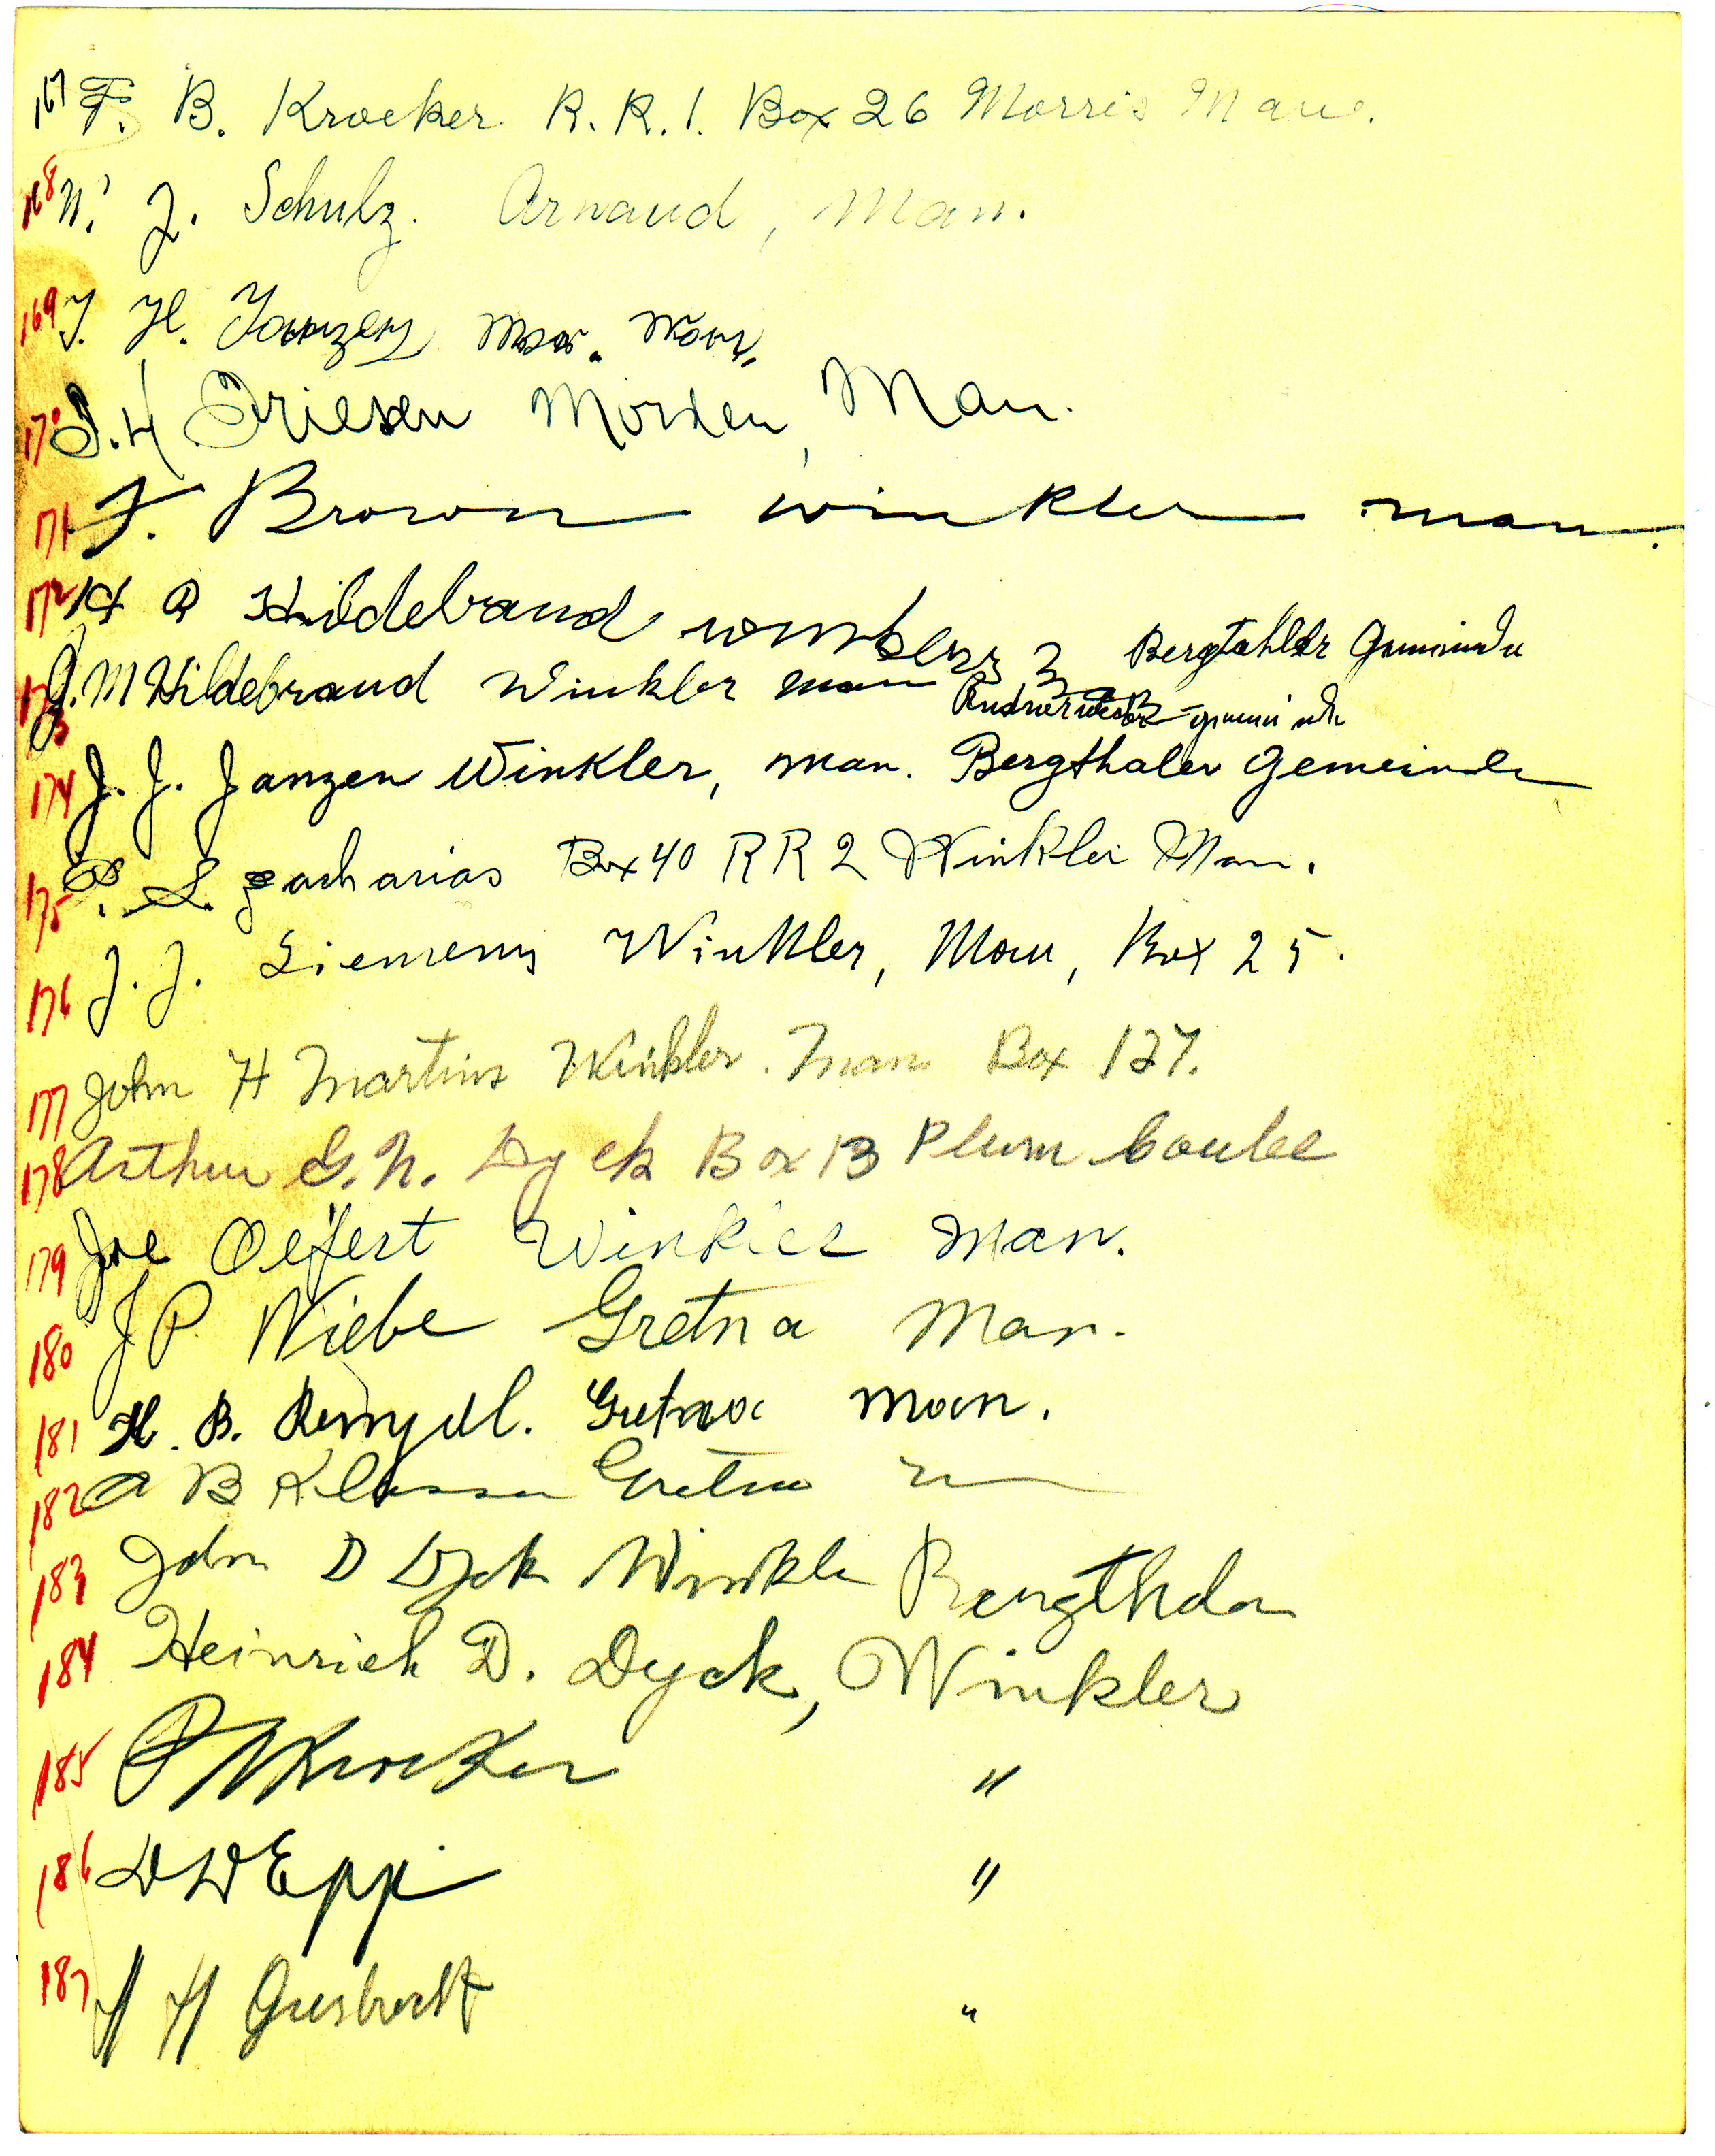 167 F. B. Kroeker R. R. 1. Box 26 Morris Man.
168 N. J. Schulz. Arnaud, Man.
169 J. H. Janzen Man.
170 J. H Friesen Morden, Man.
171 F. Brown Winkler man.
172 H A Hildebrand winkler Bergtahler Gemeinde
173 J. M Hildebrand Winkler man Rudnerweider gemeinde
174 J. J. Janzen Winkler, man. Bergthaler Gemeinde
175 P. L. Zacharias Box 40 R R 2 Winkler Man.
176 J. J. Siemens Winkler, Man, Box 25.
177 John H Martins Winkler. Man Box 127.
178 Arthur G. N. Dyck Box 13 Plum Coulee
179 Joe Oelfert Winkler Man.
180 J P. Wiebe Gretna Man.
181 H. B. Rempel. Gretna Man.
182 A B Klassen Gretna
183 John D Dyck Winkler Bergthaler
184 Heinrich D. Dyck, Winkler
185 P Kroeker "
186 D D Epp "
187 H Giesbrecht "